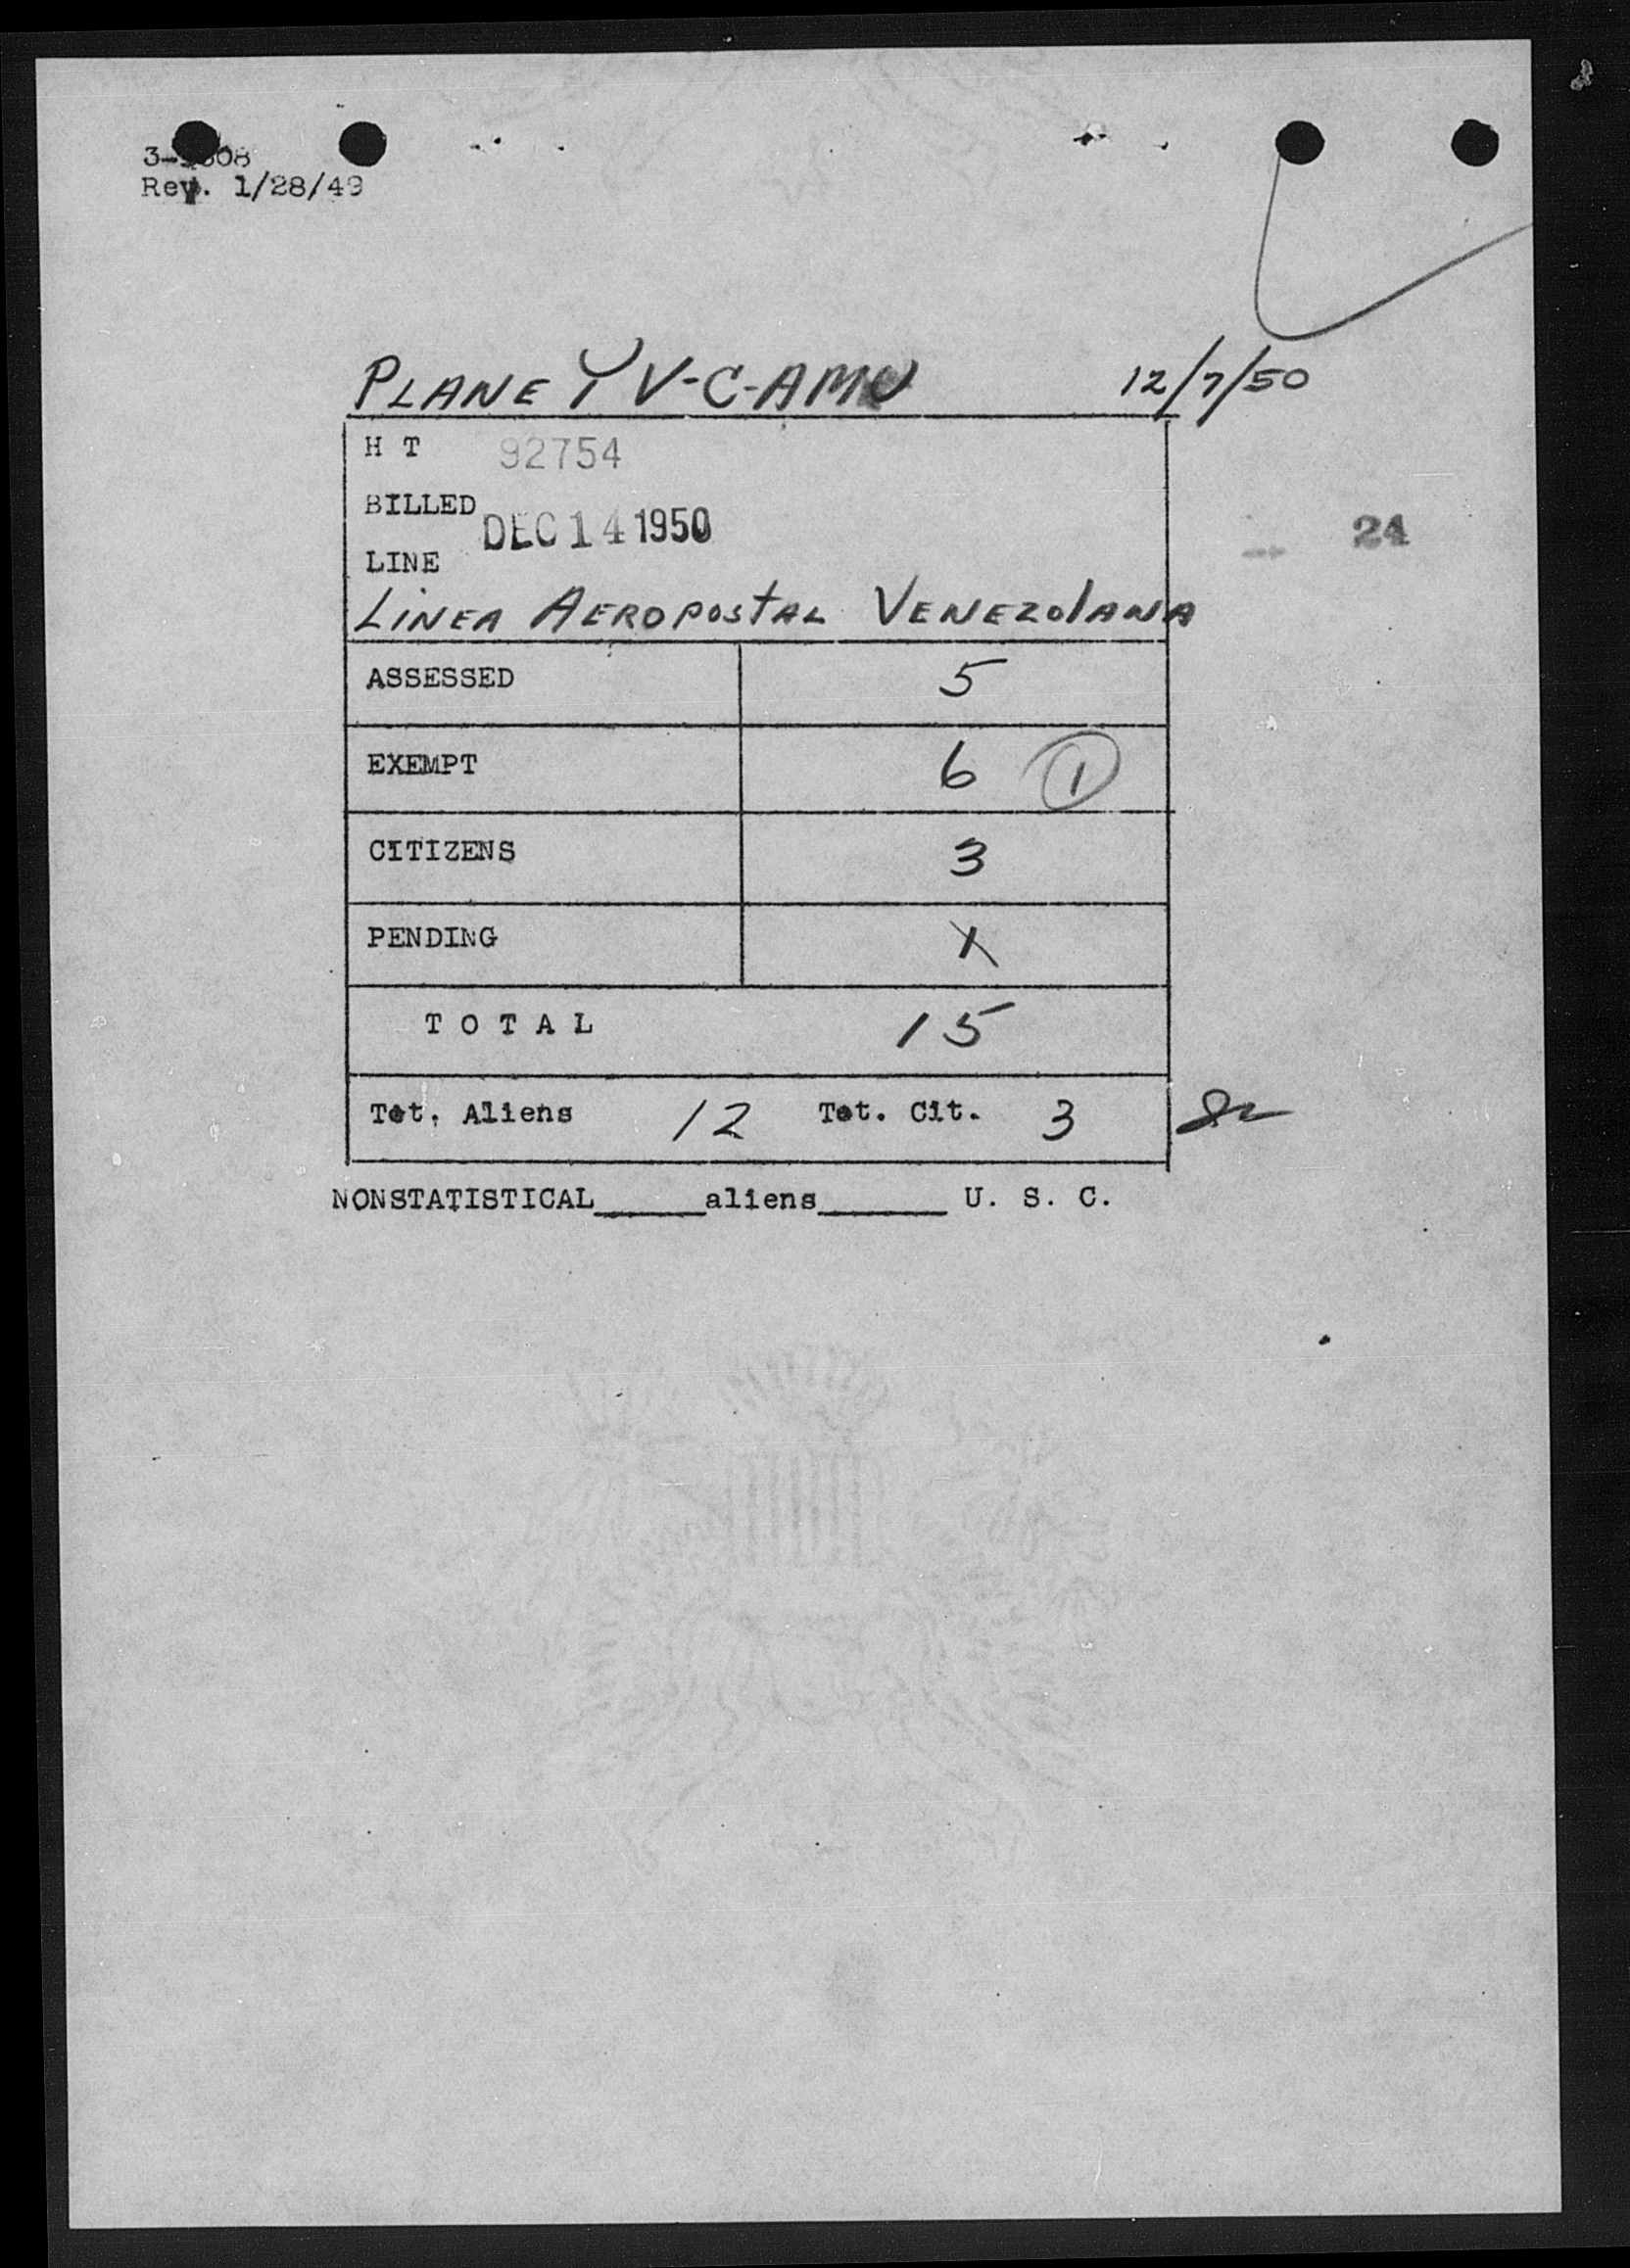 Rev. 1/28/49
PLANE YV-C-AMU 12/7/50
H T 92754
BILLED DEC 14 1950
24
LINE
LINEA AEROPOSTAL VENEZOLANA
ASSESSED 5
EXEMPT 6 1
CITIZENS 3
PENDING X
T O T A L 15
Tot. Aliens 12 Tot. Cit. 3
NONSTATISTICAL_____aliens______ U. S. C.